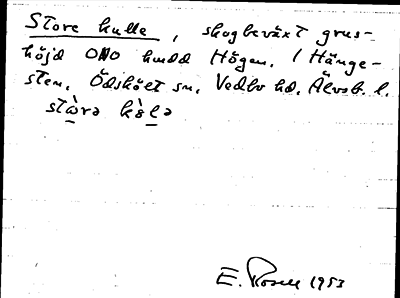 Store kulle, skogbeväxt grus-
höjd ONO hmdd Högen. / Hänge-
sten, Ödskölt sn, Vedbo hd, Älvsb. l.
stɷ̀rə kɵ̀lə
E. Rosell 1953